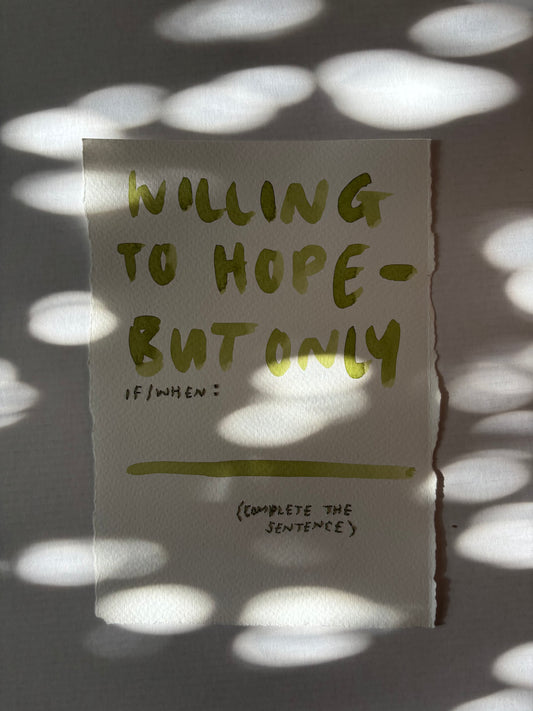 WILLING
TO HOPE-
BUT ONLY
IF/WHEN:
(COMPLETE THE
SENTENCE)